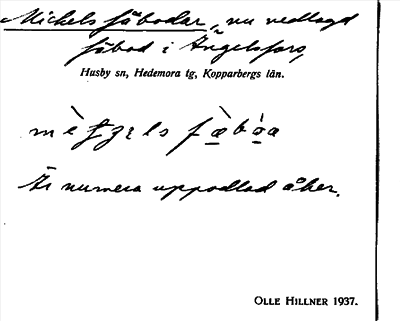 Michels fäbodar, nu nedlagd
fäbod i Ängelsfors,
Husby sn, Hedemora tg, Kopparbergs län.
Är numera uppodlad åker.
OLLE HILLNER 1937.